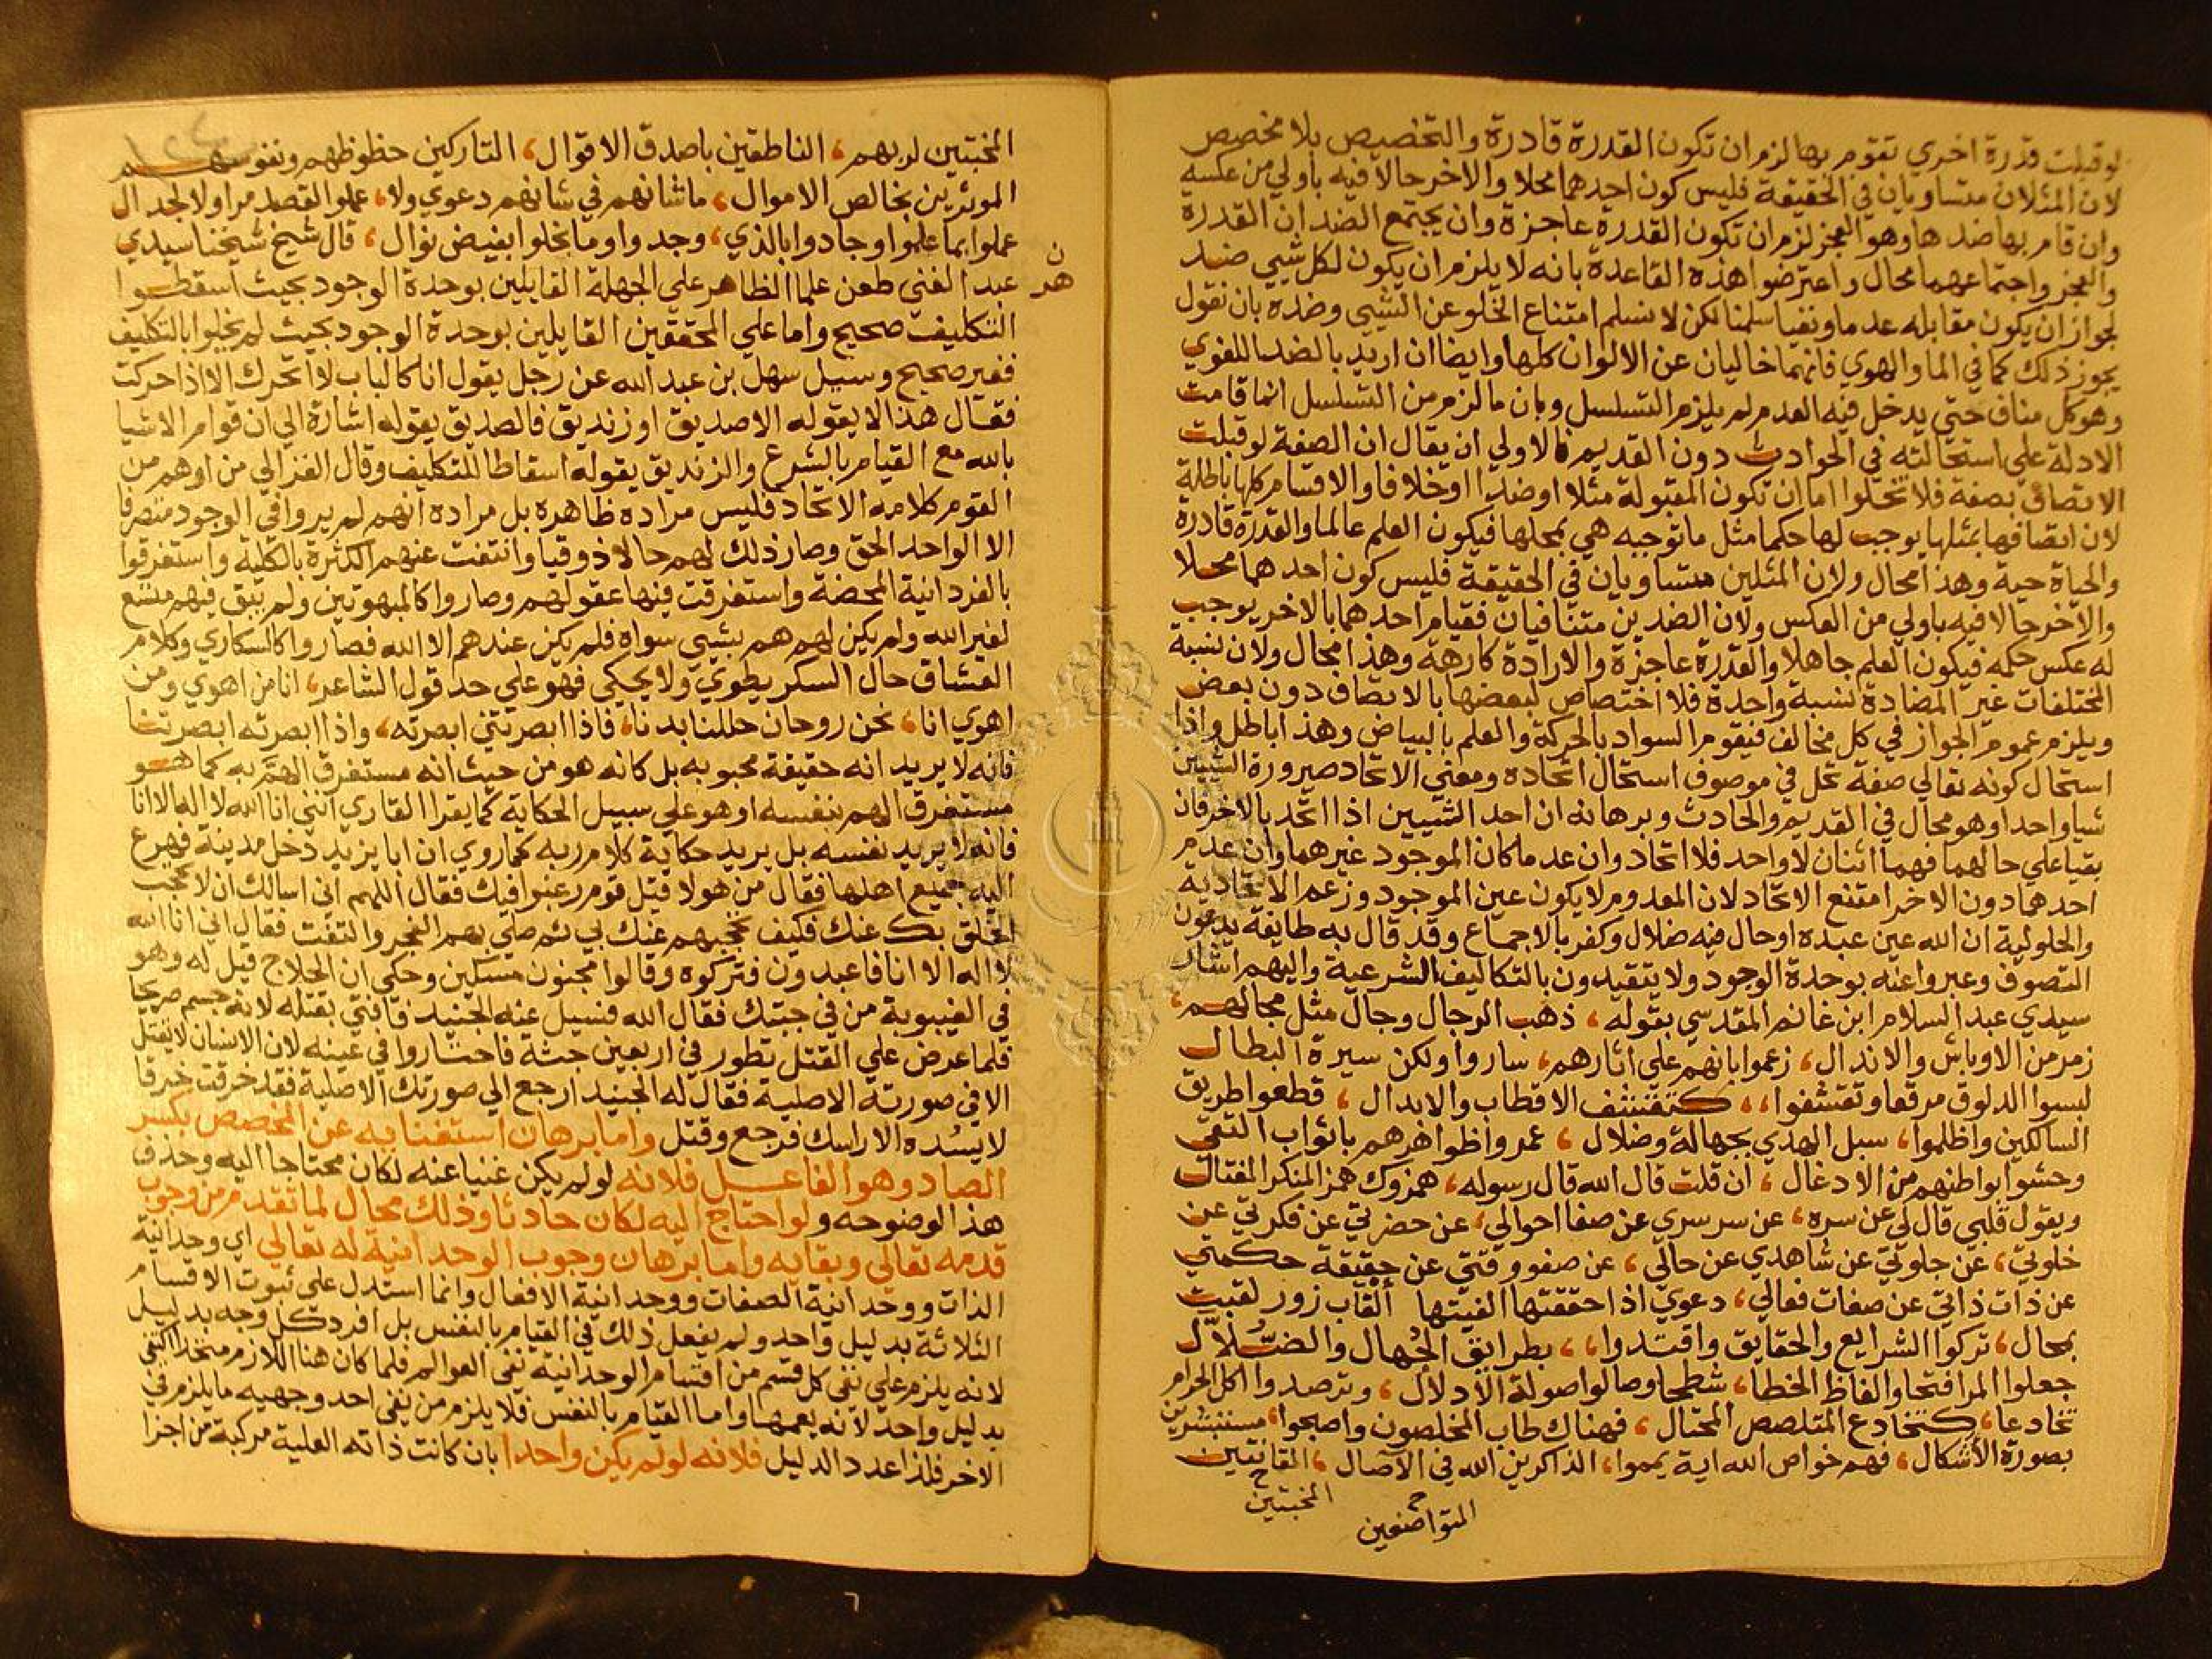 لوقبلت قدرة اخري تقوم بها لزم ان تكون القدرة قادرة والتخصيص بلا مخصص
لان المثلان متساويان في الحقيقة فليس كون احدهما محلا والاخر حالا فيه باولي من عكسه
وان قام بها ضدها وهو العجز لزم ان تكون القدرة عاجزة وان يجتمع الضدان القدرة
والعجز واجتماعهما محال واعترضوا هذه القاعدة بانه لا يلزم ان يكون لكل شيي ضد
لجواز ان يكون مقابله عدما ونفيا سلمنا لكن لا نسلم امتناع الخلو عن الشيي وضده بان نقول
يجوز ذلك كما في الما والهوي فانهما خاليان عن الالوان كلها وايضا ان اريد بالضد اللغوي
وهو كل مناف حتي يدخل فيه العدم لم يلزم التسلسل وبان ما لزم من التسلسل انما قامت
الادلة علي استحالته في الحوادث دون القديم فالاولي ان يقال ان الصفة لوقبلت
الاتصاف بصفة فلا تخلوا اما ان تكون المقبولة مثلا او ضدا او خلافا والاقسام كلها باطلة
لان اتصافها بمثلها يوجب لها حكما مثل ما توجبه هي بمحلها فيكون العلم عالما والقدرة قادرة
والحياة حية وهذا محال ولان المثلين متساويان في الحقيقة فليس كون احدهما محلا
والاخر حالا فيه باولي من العكس ولان الضدين متنافيان فقيام احدهما بالاخر يوجب
له عكس حكمه فيكون العلم جاهلا والقدرة عاجزة والارادة كارهة وهذا محال ولان نسبة
المختلفات غير المضادة نسبة واحدة فلا اختصاص لبعضها بالاتصاف دون بعض
ويلزم عموم الجواز في كل مخالف فيقوم السواد بالحركة والعلم بالبياض وهذا باطل واذا
استحال كونه تعالي صفة تحل في موصوف استحال اتحاده ومعني الاتحاد صيرورة الشيين
شيا واحدا وهو محال في القديم والحادث وبرهانه ان احد الشيين اذا اتحد بالاخر فان
بقيا علي حالهما فهما اثنان لا واحد فلا اتحاد وان عدما كان الموجود غيرهما وان عدم
احدهما دون الاخر امتنع الاتحاد لان المعدوم لا يكون عين الموجود وزعم الاتحادية
والحلولية ان الله عين عبده او حال فيه ضلال وكفر بالاجماع وقد قال به طايفة يدعون
التصوف وعبروا عنه بوحدة الوجود ولا يتقيدون بالتكاليف الشرعية واليهم اشار
سيدي عبد السلام ابن غانم المقدسي بقوله، ذهب الرجال وجال مثل مجالهم،
زمر من الاوباش والاندال، زعموا بانهم علي اثارهم، ساروا ولكن سيرة البطال
لبسوا الدلوق مرقعا وتقشفوا،، كتقشف الاقطاب والابدال، قطعوا طريق
السالكين واظلموا، سبل الهدي بجهالة وضلال، عمروا ظواهرهم باثواب التقي
وحشوا بواطنهم من الادغال، ان قلت قال الله قال رسوله، همزوك همز المنكر المغتال
ويقول قلبي قال لي عن سره، عن سر سري عن صفا احوالي، عن حضرتي عن فكرتي عن
خلوتي، عن جلوتي عن شاهدي عن حالي، عن صفو وقتي عن حقيقة حكمتي
عن ذات ذاتي عن صفات فعالي، دعوي اذا حققتها الفيتها القاب زور لقبت
بمحال، تركوا الشرايع والحقايق واقتدوا،، بطرايق الجهال والضلال
جعلوا المرا فتحا والفاظ الخطا، شطحا وصالوا صولة الادلال، وترصدوا اكل الحرام
تخادعا، كتخادع المتلصص المحتال، فهناك طاب المخلصون واصبحوا، مستبشرين
بصورة الأشكال، فهم خواص الله اية يمموا، الذاكرين الله في الآصال، القانتين
المخبتين
المتواضعين
المخبتين لربهم، الناطقين باصدق الاقوال، التاركين حظوظهم ونفوسهم
الموثرين بخالص الاموال، ماشانهم في شانهم دعوي ولا، علموا القصد مرا ولا لجدال
عملوا بما علموا وجادوا بالذي، وجدوا وما بخلوا بفيض نوال، قال شيخ شيخنا سيدي
عبد الغني طعن علما الظاهر علي الجهلة القايلين بوحدة الوجود بحيث اسقطوا
التكليف صحيح واما علي المحققين القايلين بوحدة الوجود بحيث لم يخلوا بالتكليف
فغير صحيح وسيل سهل بن عبد الله عن رجل يقول انا كالباب لا اتحرك الا اذا حركت
فقال هذا لا يقوله الا صديق او زنديق فالصديق يقوله اشارة الي ان قوام الاشيا
بالله مع القيام بالشرع والزنديق يقوله اسقاطا للتكليف وقال الغزالي من اوهم من
القوم كلامه الاتحاد فليس مراده ظاهره بل مراده انهم لم يروا في الوجود متصرفا
الا الواحد الحق وصار ذلك لهم حالا ذوقيا وانتفت عنهم الكثرة بالكلية واستغرقوا
بالفردانية المحضة واستغرقت فيها عقولهم وصاروا كالمبهوتين ولم يبق فيهم متسع
لغير الله ولم يكن لهم هم بشيي سواه فلم يكن عندهم الا الله فصاروا كالسكاري وكلام
العشاق حال السكر يطوي ولا يحكي فهو علي حد قول الشاعر، انا من اهوي ومن
اهوي انا، نحن روحان حللنا بدنا، فاذا ابصرتني ابصرته، واذا ابصرته ابصرتنا
فانه لا يريد انه حقيقة محبوبه بل كانه هو من حيث انه مستغرق الهم به كما هو
مستغرق الهم بنفسه او هو علي سبيل الحكاية كما يقرا القاري انني انا الله لا اله الا انا
فانه لا يريد نفسه بل يريد حكاية كلام ربه كما روي ان ابا يزيد دخل مدينة فهرع
اليه جميع اهلها فقال من هولا قيل قوم رغبوا فيك فقال اللهم اني اسالك ان لا تحجب
الخلق بك عنك فكيف تحجبهم عنك بي ثم صلي بهم الفجر والتفت فقال اني انا الله
لا اله الا انا فاعبدون فتركوه وقالوا مجنون مسكين وحكي ان الحلاج قيل له وهو
في الغيبوبة من في جبتك فقال الله فسيل عنه الجنيد فافتي بقتله لانه جسم صريحا
فلما عرض علي القتل تطور في اربعين جثة فاحتاروا في عينه لان الانسان لا يقتل
الا في صورته الاصلية فقال له الجنيد ارجع الي صورتك الاصلية فقد خرقت خرقا
لا يسده الا راسك فرجع وقتل واما برهان استغنايه عن المخصص بكسر
الصاد وهو الفاعل فلانه لو لم يكن غنيا عنه لكان محتاجا اليه وحذف
هذا لوضوحه ولو احتاج اليه لكان حادثا وذلك محال لما تقدم من وجوب
قدمه تعالي وبقايه واما برهان وجوب الوحدانية له تعالي اي وحدانية
الذات ووحدانية الصفات ووحدانية الافعال وانما استدل علي ثبوت الاقسام
الثلاثة بدليل واحد ولم يفعل ذلك في القيام بالنفس بل افرد كل وجه بدليل
لانه يلزم علي نفي كل قسم من اقسام الوحدانية نفي العوالم فلما كان هنا اللازم متحدا اكتفي
بدليل واحد لانه يعمها واما القيام بالنفس فلا يلزم من نفي احد وجهيه ما يلزم في
الاخر فلذا عدد الدليل فلانه لو لم يكن واحدا بان كانت ذاته العلية مركبة من اجزا